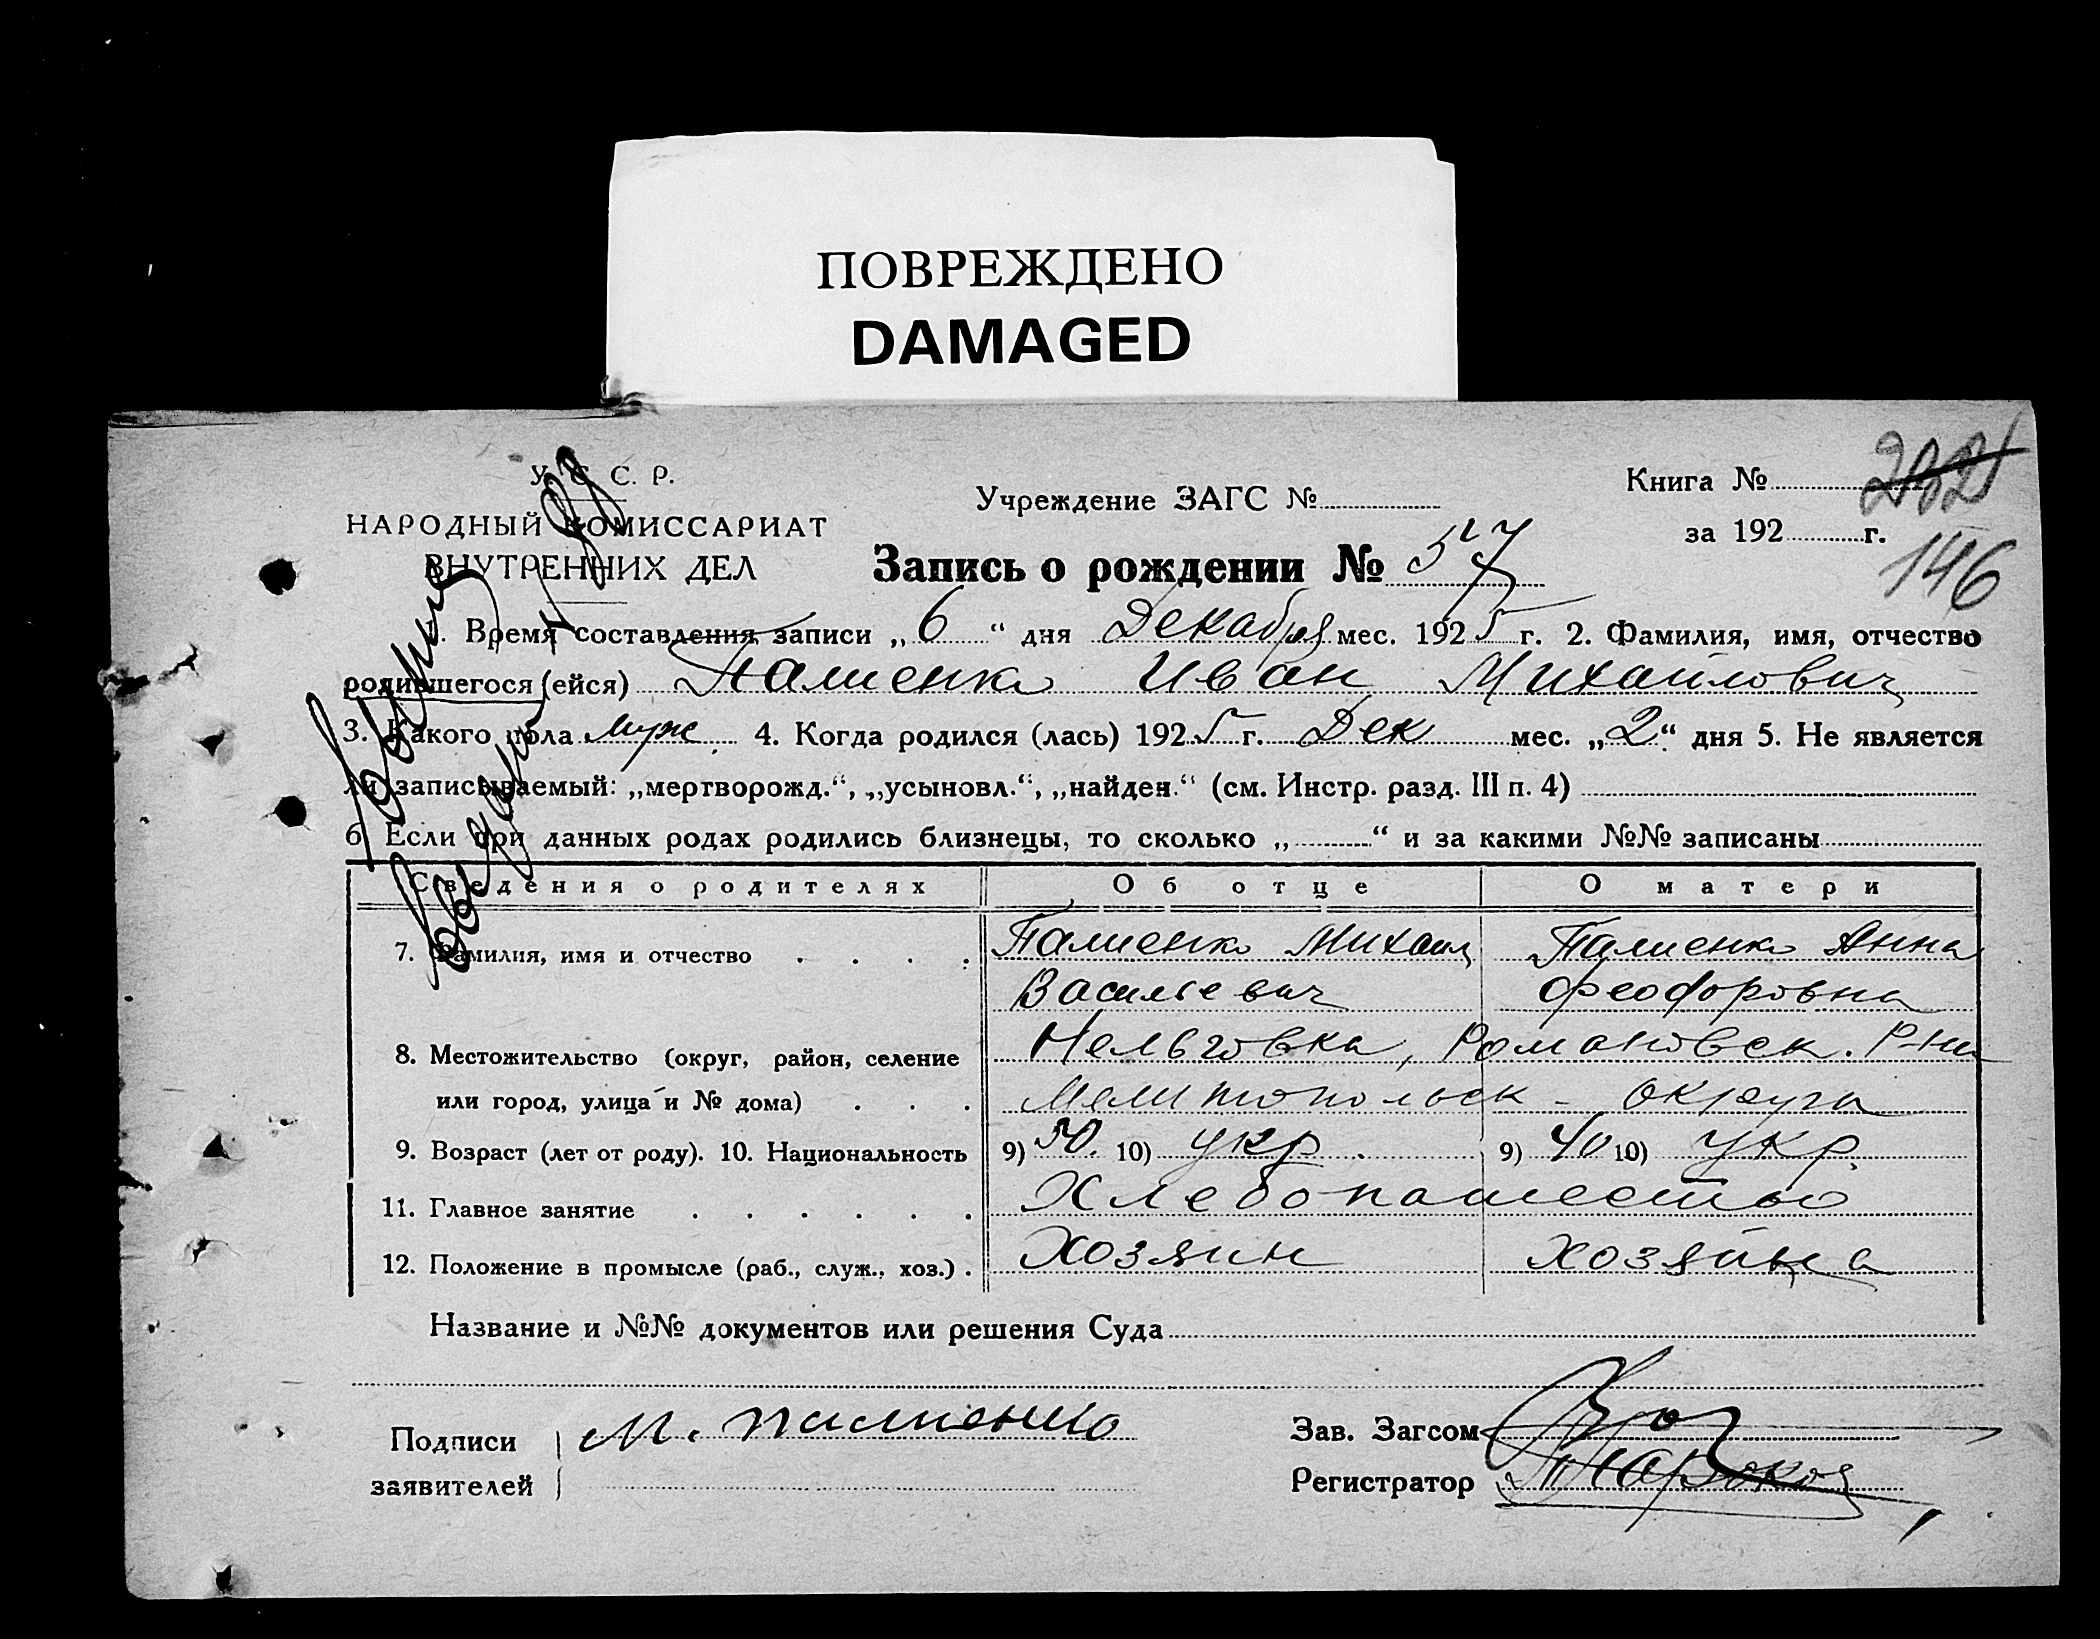 ПОВРЕЖДЕНО
DAMAGED
У. С. С. Р.
НАРОДНЫЙ КОМИССАРИАТ
ВНУТРЕННИХ ДЕЛ
Учреждение ЗАГС №
Книга № 282
за 192 г.
146
Запись о рождении № 57
1. Время составления записи „ 6 “ дня Декабря мес. 1925 г. 2. Фамилия, имя, отчество
родившегося (ейся) Палиенко Иван Михайлович
3. Какого пола муж 4. Когда родился (лась) 1925 г. Дек мес. „ 2 “ дня 5. Не является
ли записываемый: „мертворожд.“, „усыновл.“, „найден.“ (см. Инстр. разд. III п. 4)
6. Если при данных родах родились близнецы, то сколько „ “ и за какими №№ записаны
Сведения о родителях Об отце О матери
7. Фамилия, имя и отчество Палиенко Михаил Палиенко Анна
Васильевич Феодоровна
8. Местожительство (округ, район, селение Нельговка, Романовск. р-на
или город, улица и № дома) Мелитопольск - округа
9. Возраст (лет от роду). 10. Национальность 9) 50. 10) укр. 9) 40 10) укр.
11. Главное занятие Хлебопашество
12. Положение в промысле (раб., служ., хоз.) Хозяин хозяйка
Название и №№ документов или решения Суда
Подписи М. Палиенко
заявителей
Зав. Загсом
Регистратор